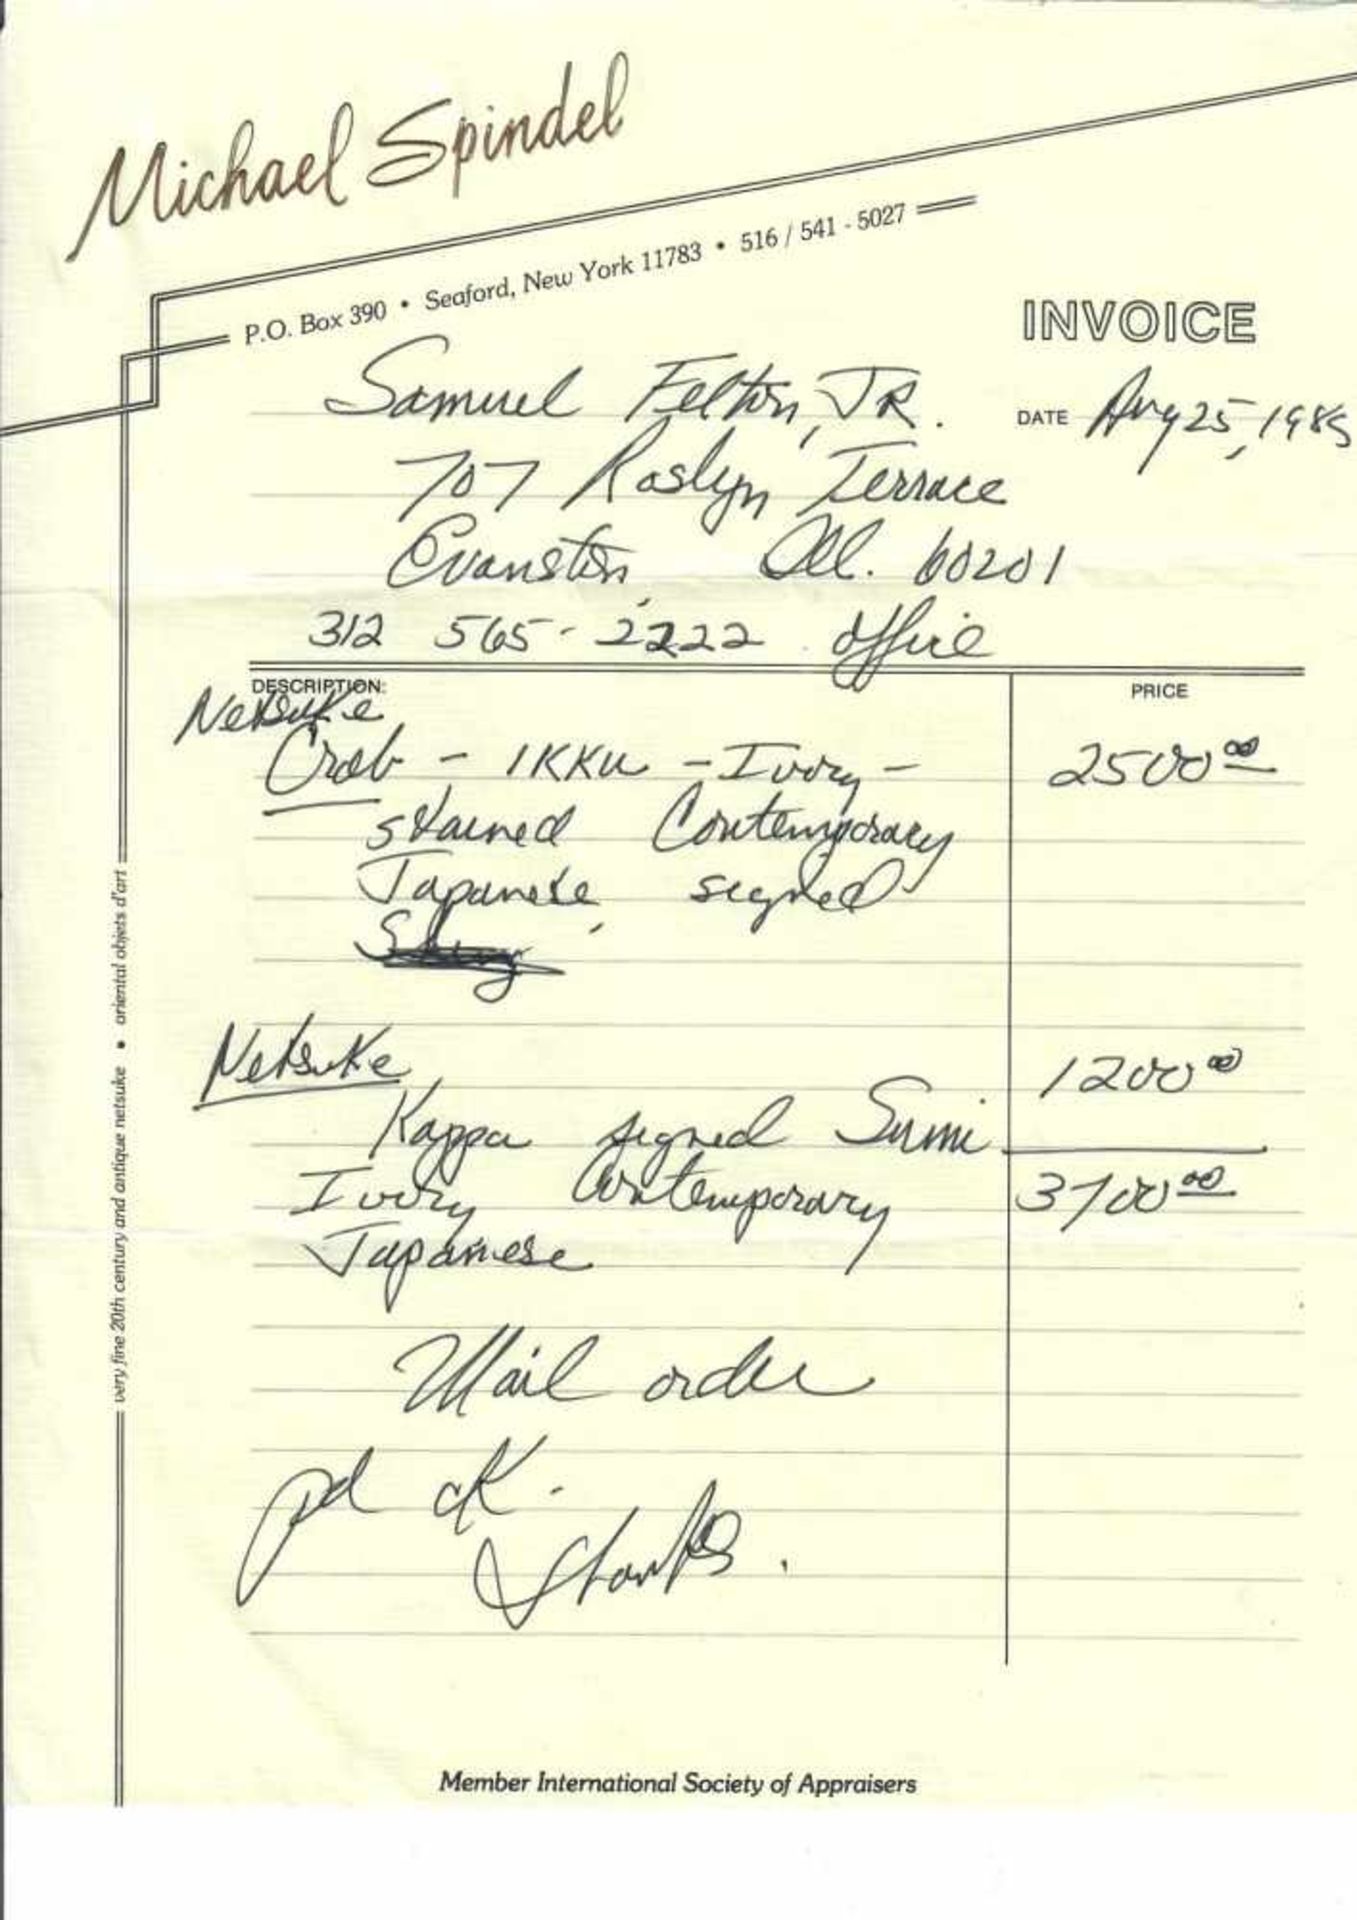 Michael Spindel
P.O. Box 390 • Seaford, New York 11783 • 516 / 541 - 5027
INVOICE
Samuel Felton, JR.
DATE Aug 25, 1985
707 Roslyn Terrace
Evanston, Ill. 60201
312 565-2222 office
DESCRIPTION: PRICE
Netsuke
Crab - IKKU - Ivory - 2500.00
stained Contemporary
Japanese, signed
Netsuke 1200.00
Kappa signed Sumi
Ivory Contemporary 3700.00
Japanese
Mail order
pd cK.
Thanks.
very fine 20th century and antique netsuke • oriental objets d'art
Member International Society of Appraisers